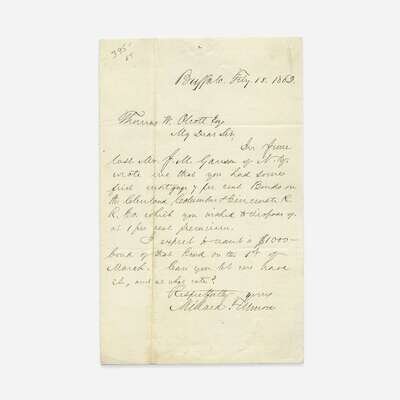 395-
Buffalo, Feby 18. 1862.
Thomas W. Olcott Esq
My Dear Sir,
In June
last Mr. J. M. Ganson of N. Y.
wrote me that you had some
first mortgage 7 per cent Bonds on
the Cleveland, Columbus & Cincinnati R.
R. Co. which you wished to dispose of
at 1 per cent premium.
I expect to want a $1000-
bond of that Road on the 1st of
March. Can you let me have
it, and at what rate?
Respectfully yours
Millard Fillmore